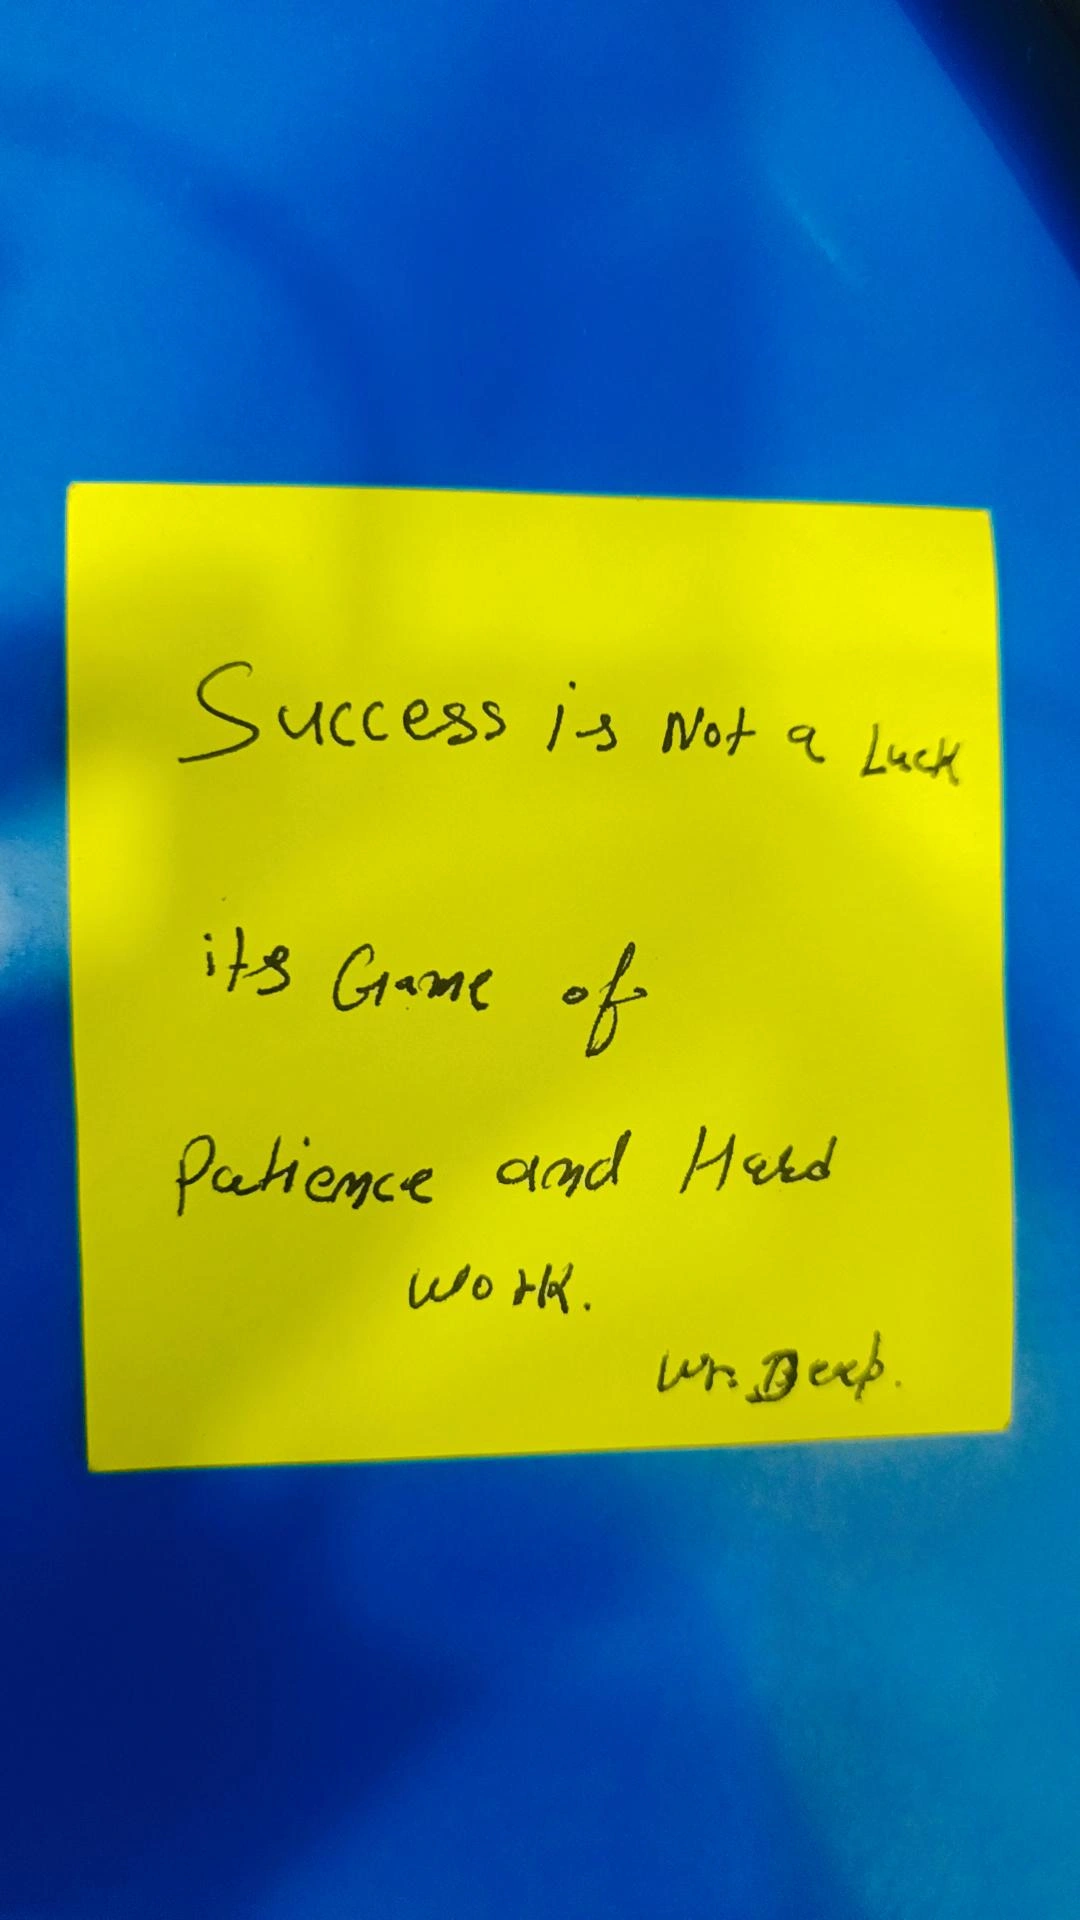 Success is Not a Luck
its Game of
Patience and Hard
Work.